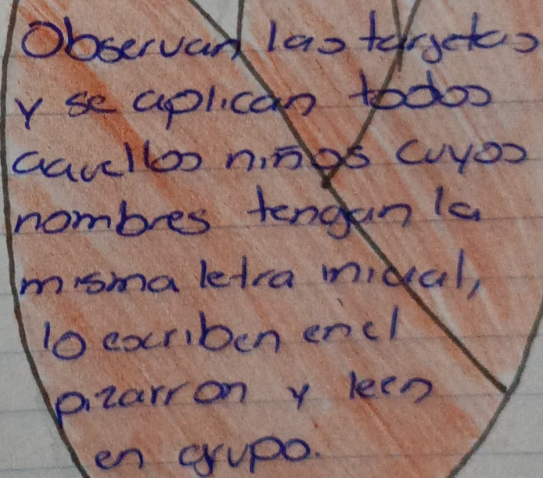 Observan las targetas
y se aplican todos
aquellos niños cuyos
nombres tengan la
misma letra inicial,
lo escriben en el
pizarron y leen
en grupo.